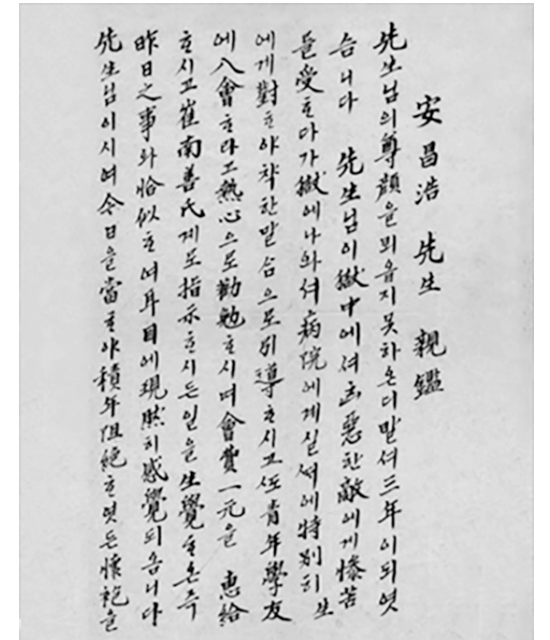 安昌浩 先生 親鑑
先生님의 尊顔을 뵈옵지 못하온 디 말셔 三年이 되엿
습니다 先生님이 獄中에셔 凶惡한 敵에게 慘苦
를 受ᄒᆞ다가 獄에 나와셔 病院에 계실 ᄯᅢ에 特別히 生
에게 對ᄒᆞ야 착한 말삼으로 引導ᄒᆞ시고 ᄯᅩ 青年學友
에 入會ᄒᆞ라고 熱心으로 勸勉ᄒᆞ시며 會費一元을 惠給
ᄒᆞ시고 崔南善氏게로 指示ᄒᆞ시든 일을 生覺ᄒᆞ온즉
昨日之事와 恰似ᄒᆞ여 耳目에 現然히 感覺되옵니다
先生님이시여 今日을 當ᄒᆞ야 積年阻絶ᄒᆞ엿든 懷抱을